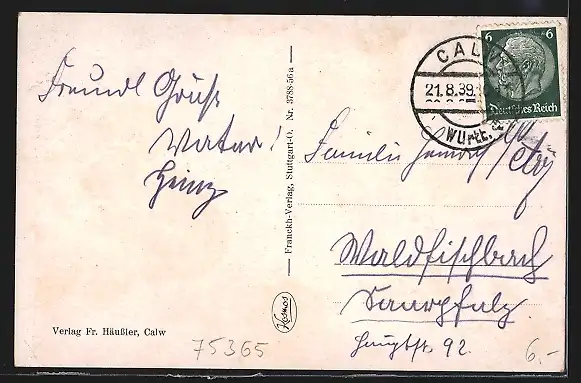 Freundl Grüße
Vater!
Heinz
Verlag Fr. Häußler, Calw
75365
Franckh-Verlag, Stuttgart-O. Nr. 3788-56a
Kosmos
CALW
21.8.39.
WÜRTT.
6 6
Deutsches Reich
Familie
Waldfischbach
Saarpfalz
Hauptstr. 92.
6.-